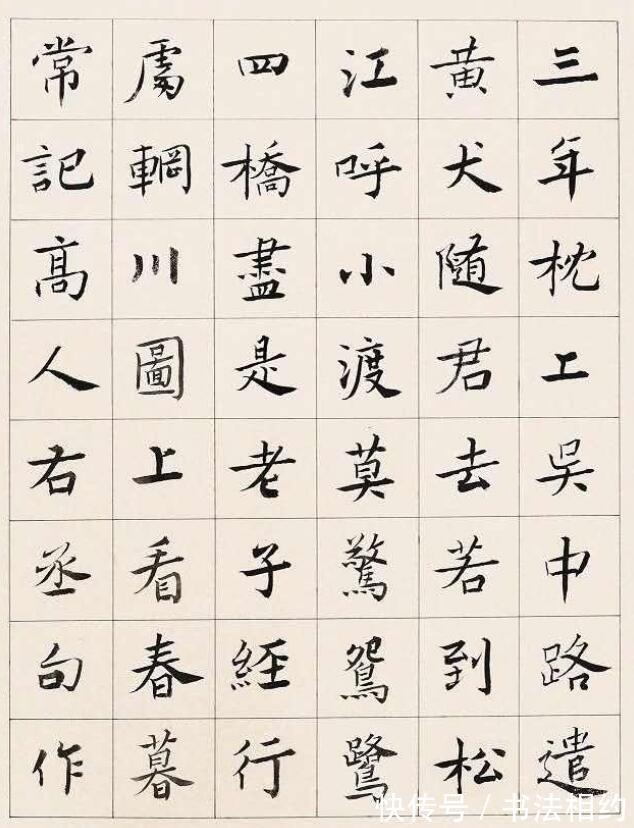 三年枕上吴中路遣
黄犬随君去若到松
江呼小渡莫驚鴛鷺
四橋盡是老子經行
處輞川圖上看春暮
常記高人右丞句作
快传号 / 书法相约